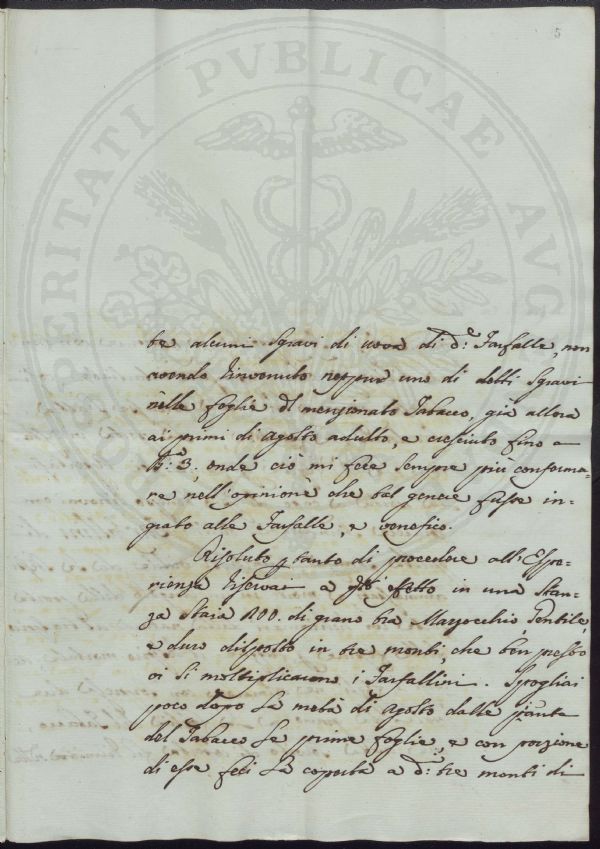 5
PROSPERITATI PVBLICAE AVG
be alcuni sgravi di uova di d.e Farfalle, non
avendo rinvenuto neppur uno di detti sgravi
nelle foglie del menzionato Tabacco, già allora
ai primi di agosto adulto, e cresciuto fino a
3, onde ciò mi fece sempre più conforma-
re nell'opinione che tal genere fusse in-
grato alle Farfalle, e venefico.
Risoluto p tanto di procedere all'Espe-
rienza riservai a effetto in una Stan-
za Staia 100. di grano tra Mazzocchio Gentile,
e duro disposto in tre monti, che ben presto
vi si moltiplicarono i Farfallini. Spogliai
poco dopo la metà di agosto dalle piante
del Tabacco le prime foglie, e con porzione
di esse feci la coperta a d.i tre monti di